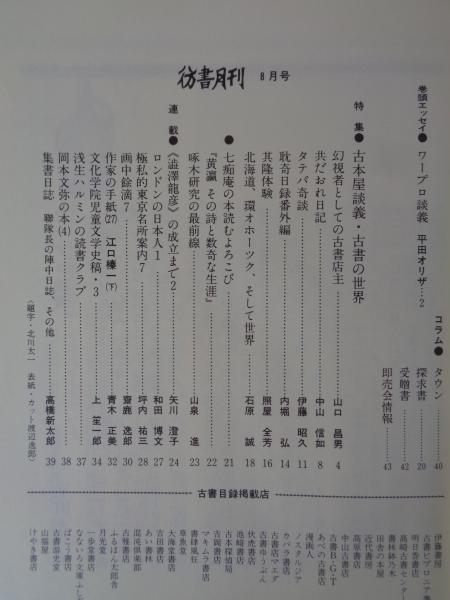 彷書月刊 8月号
巻頭エッセイ●ワープロ談義 平田オリザ…2
特集●古本屋談義・古書の世界
幻視者としての古書店主 山口昌男 4
共だおれ日記 中山信如 8
タテバ奇談 伊藤昭久 11
耽奇日録番外編 内堀弘 14
其隆体験 照屋全芳 16
北海道、環オホーツク、そして世界 石原誠 18
●七痴庵の本読むよろこび 21
『黄瀛 その詩と数奇な生涯』 22
啄木研究の最前線 山泉進 23
連載●〈澁澤龍彦〉の成立まで2 矢川澄子 24
ロンドンの日本人1 和田博文 27
極私的東京名所案内7 坪内祐三 28
画中餘滴7 齋鹿逸郎 30
作家の手紙(27) 江口榛一(下) 青木正美 32
文化学院児童文学史稿・3 上笙一郎 34
浅生ハルミンの読書クラブ 37
岡本文弥の本(4) 38
集書日誌 聯隊長の陣中日誌、その他 高橋新太郎 39
〈題字・北川太一 表紙・カット渡辺逸郎〉
コラム●タウン 40
探求書 20
受贈書 42
即売会情報 43
古書目録掲載店
伊藤書房
古書ビブロニア書店
明日香書店
高崎古書センター
書林鉢乃木
田舎の本屋
近代書房
高原書店
中山古書店
古書B・G・T
あべの古書店
漫画人
ノスタルジア
カバラ書店
古書店マエダ
古書ゆうぶん
伏虎書店
亀崎書店
古本探偵局
吉岡書店
マキムラ書店
書肆風狂
草魚堂
大海堂書店
吉田書店
あい書林
混沌倶楽部
古雅書店
ふるほん太郎舎
月光堂
一歩堂書店
なないろ文庫ふしぎ
ばこう書店
古書游史堂
山猫屋
けやき書店